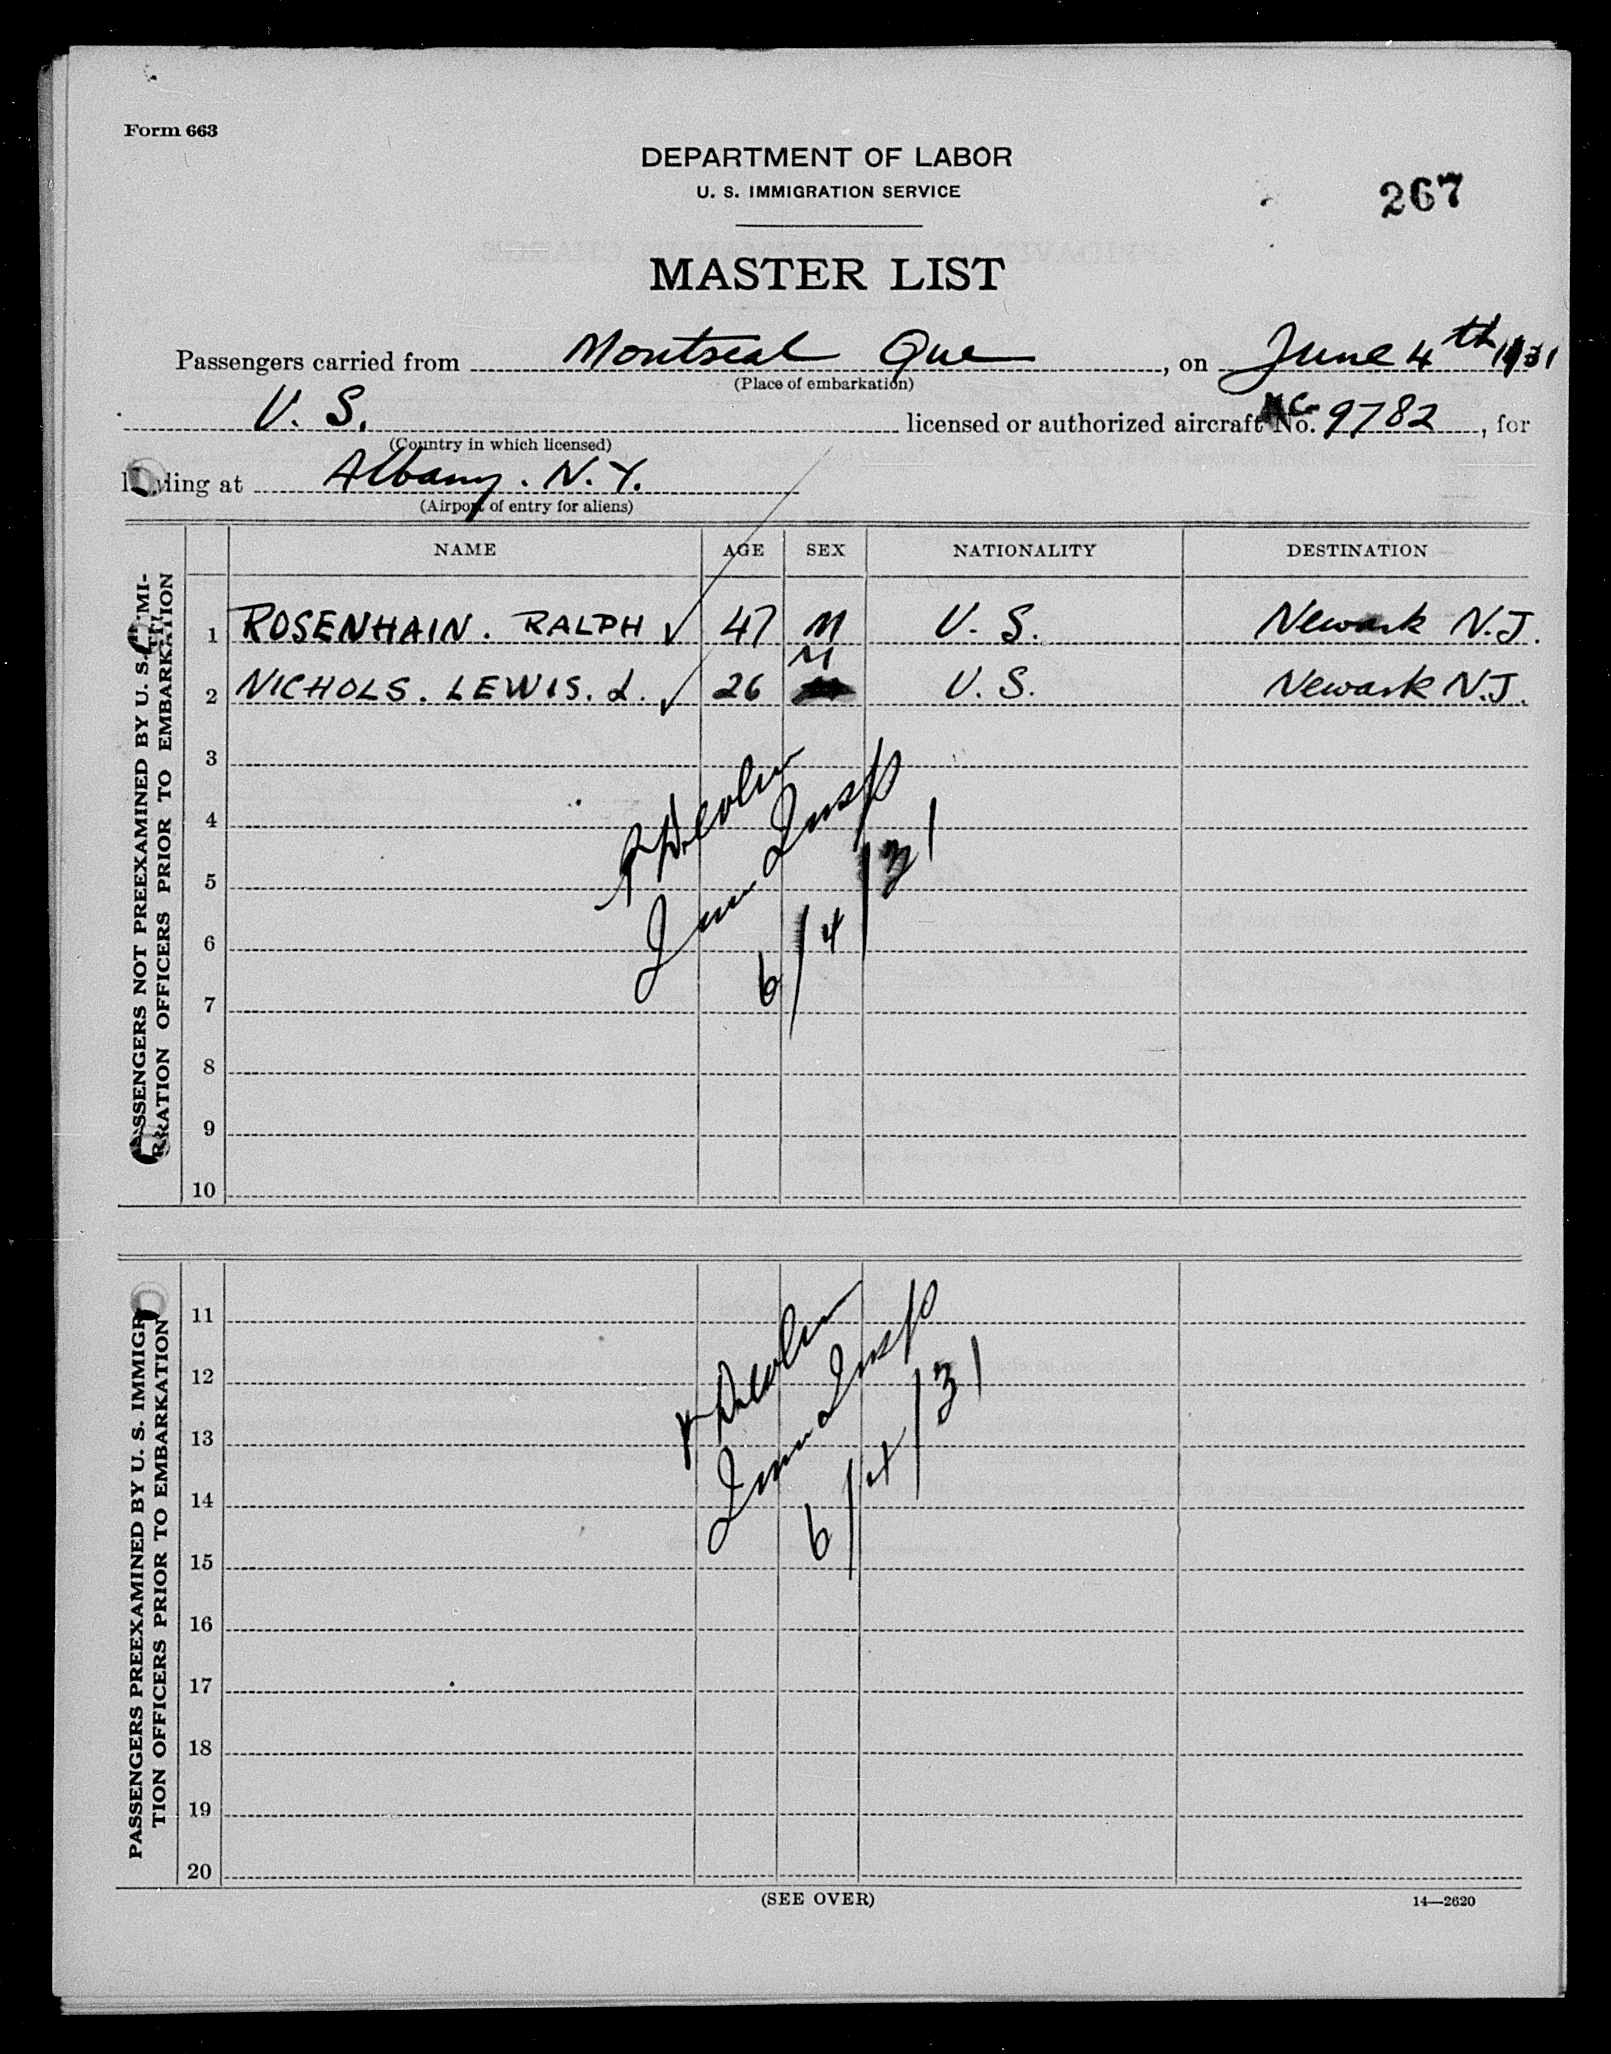 Form 663
DEPARTMENT OF LABOR
U. S. IMMIGRATION SERVICE
267
MASTER LIST
Passengers carried from Montreal Que, on June 4th 1931
(Place of embarkation)
U. S. licensed or authorized aircraft No. NC 9782, for
(Country in which licensed)
landing at Albany. N.Y.
(Airport of entry for aliens)
NAME AGE SEX NATIONALITY DESTINATION
PASSENGERS NOT PREEXAMINED BY U. S. IMMI-
GRATION OFFICERS PRIOR TO EMBARKATION
1 ROSENHAIN. RALPH ✓ 47 M U. S. Newark N.J.
2 NICHOLS. LEWIS. L. ✓ 26 M U. S. Newark N.J.
3
4
5
6
7
8
9
10
Imm Insp
6/4/31
PASSENGERS PREEXAMINED BY U. S. IMMIGRA-
TION OFFICERS PRIOR TO EMBARKATION
11
12
13
14
15
16
17
18
19
20
Imm Insp
6/4/31
(SEE OVER)
14—2620